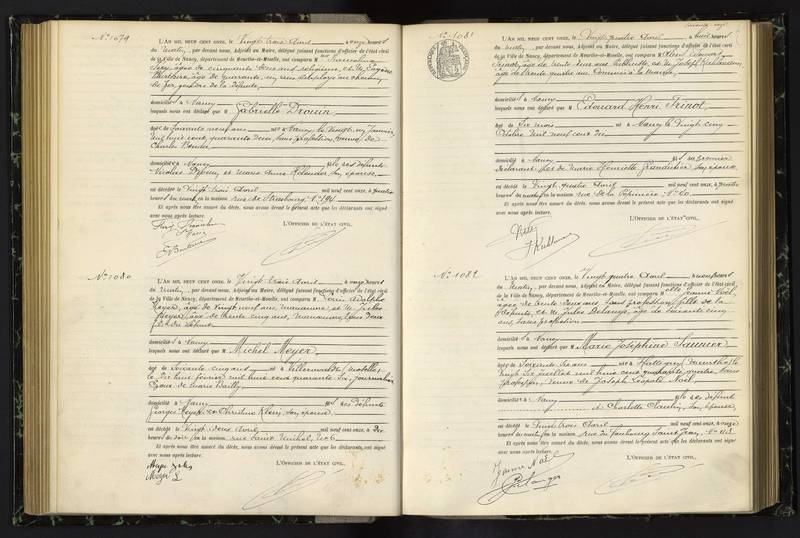 N° 1079
L'AN MIL NEUF CENT ONZE, le Vingt trois Avril à onze heures
du matin, par devant nous, Adjoint au Maire, délégué faisant fonctions d'officier de l'état civil
de la Ville de Nancy, département de Meurthe-et-Moselle, ont comparu M
âgé de cinquante ans et M. Eugène
âgé de quarante employé au chemin
de fer, gendre de la défunte,
domiciliés à Nancy
lesquels nous ont déclaré que M Gabrielle Drouin
âgée de soixante neuf ans née à Nancy, le vingt un Janvier
mil huit cent quarante deux, sans profession, veuve de
Charles
domiciliée à Nancy fille des défunts
Nicolas Drouin et Marie Anne son épouse
est décédée le Vingt trois Avril mil neuf cent onze, à
heures du matin en la maison rue de Strasbourg, N° 194
Et après nous être assuré du décès, nous avons dressé le présent acte que les déclarants ont signé
avec nous après lecture.
L'OFFICIER DE L'ÉTAT CIVIL,
N° 1080
L'AN MIL NEUF CENT ONZE, le Vingt trois Avril à onze heures
du matin, par devant nous, Adjoint au Maire, délégué faisant fonctions d'officier de l'état civil
de la Ville de Nancy, département de Meurthe-et-Moselle, ont comparu M Louis Adolphe
Meyer, âgé de vingt neuf ans, manœuvre, et M. Jules
Meyer, âgé de trente cinq ans, manœuvre, tous deux
fils du défunt
domiciliés à Nancy
lesquels nous ont déclaré que M Michel Meyer
âgé de soixante cinq ans né à (Moselle)
le dix huit février mil huit cent quarante six, journalier
époux de Marie Bailly
domicilié à Nancy fils des défunts
Georges Meyer et Christine Klein, son épouse
est décédé le Vingt deux Avril mil neuf cent onze, à dix
heures du soir en la maison rue Saint Michel, N° 6
Et après nous être assuré du décès, nous avons dressé le présent acte que les déclarants ont signé
avec nous après lecture.
L'OFFICIER DE L'ÉTAT CIVIL,
Meyer Jules
Meyer L
N° 1081
L'AN MIL NEUF CENT ONZE, le Vingt quatre Avril à huit heures
du matin, par devant nous, Adjoint au Maire, délégué faisant fonctions d'officier de l'état civil
de la Ville de Nancy, département de Meurthe-et-Moselle, ont comparu M Albert
Trinot, âgé de trente trois ans et M. Joseph
âgé de trente quatre ans commis à la mairie,
domiciliés à Nancy
lesquels nous ont déclaré que M Edouard Henri Trinot
âgé de six mois né à Nancy le vingt cinq
Octobre mil neuf cent dix
domicilié à Nancy fils du premier
déclarant et de Marie Henriette son épouse
est décédé le Vingt quatre Avril mil neuf cent onze, à
heures du matin en la maison rue de la Pépinière N° 60
Et après nous être assuré du décès, nous avons dressé le présent acte que les déclarants ont signé
avec nous après lecture.
L'OFFICIER DE L'ÉTAT CIVIL,
N° 1082
L'AN MIL NEUF CENT ONZE, le Vingt quatre Avril à neuf heures
du matin, par devant nous, Adjoint au Maire, délégué faisant fonctions d'officier de l'état civil
de la Ville de Nancy, département de Meurthe-et-Moselle, ont comparu M elle Jeanne Noël,
âgée de trente deux ans, sans profession, fille de la
défunte, et M. Jules Delange, âgé de soixante cinq
ans, sans profession
domiciliés à Nancy
lesquels nous ont déclaré que M Marie Joséphine Saunier
âgée de soixante six ans née à Hattigny (Meurthe) le
vingt six juillet mil huit cent quarante quatre, sans
profession, veuve de Joseph Léopold Noël
domiciliée à Nancy
et Charlotte son épouse,
est décédée le Vingt trois Avril mil neuf cent onze, à onze
heures du matin en la maison rue du faubourg Saint Jean, N° 43
Et après nous être assuré du décès, nous avons dressé le présent acte que les déclarants ont signé
avec nous après lecture.
L'OFFICIER DE L'ÉTAT CIVIL,
Jeanne Noël
Delange